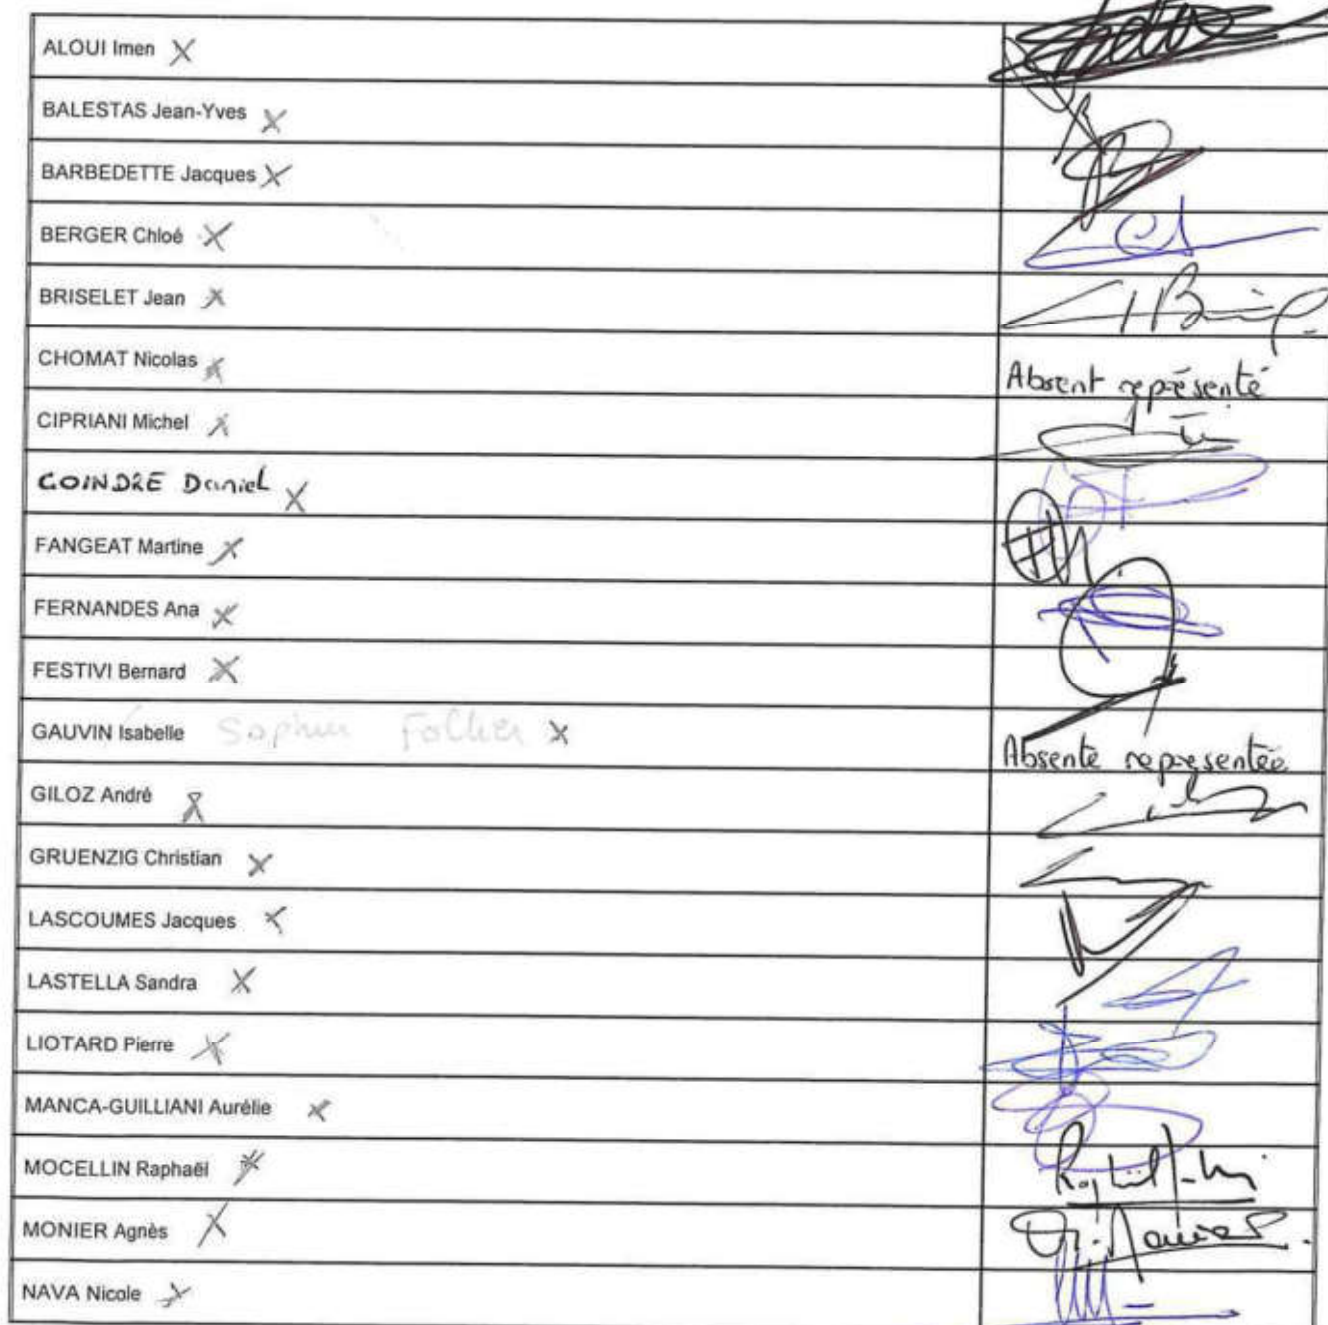 ALOUI Imen
BALESTAS Jean-Yves
BARBEDETTE Jacques
BERGER Chloé
BRISELET Jean
CHOMAT Nicolas
Absent représenté
CIPRIANI Michel
COINDRE Daniel
FANGEAT Martine
FERNANDES Ana
FESTIVI Bernard
GAUVIN Isabelle Sophie
Absente représentée
GILOZ André
GRUENZIG Christian
LASCOUMES Jacques
LASTELLA Sandra
LIOTARD Pierre
MANCA-GUILLIANI Aurélie
MOCELLIN Raphaël
MONIER Agnès
NAVA Nicole